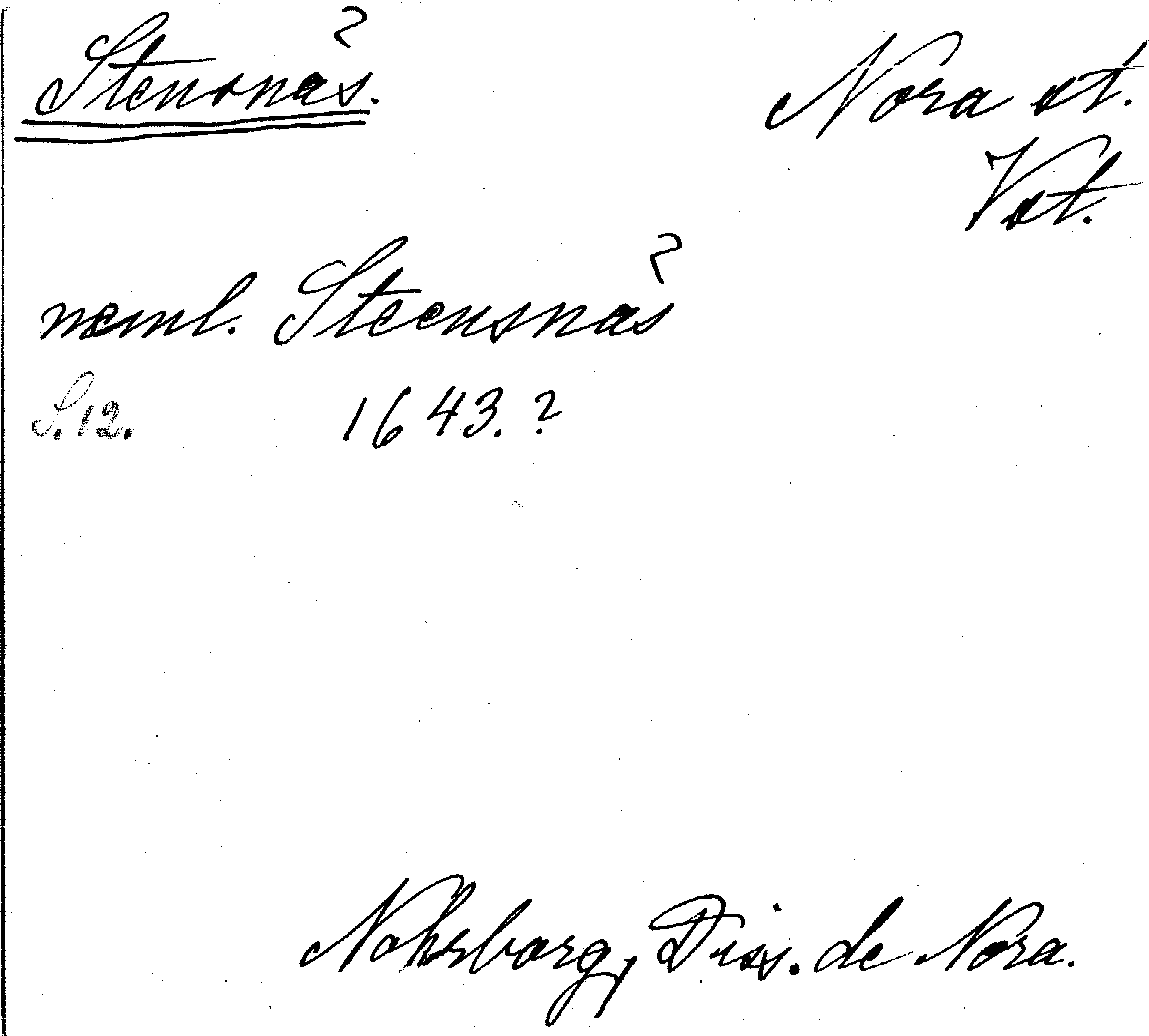 Stensnäs.?
Nora st.
Vst.
neml. Steensnäs?
S. 12. 1643.?
Nohrborg, Diss. de Nora.